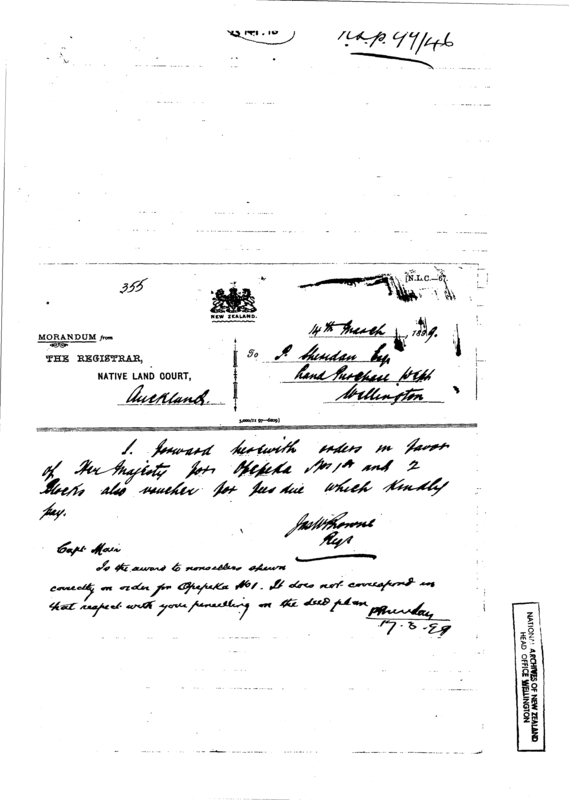 N.L.P. 99/46
355
[N.L.C.—67.
NEW ZEALAND.
14th March 1899.
MORANDUM from
THE REGISTRAR,
NATIVE LAND COURT,
Auckland.
To P. Sheridan Esq
Land Purchase Dept
Wellington
I forward herewith orders in favor
of Her Majesty for Opepeka Nos 1 and 2
Blocks also voucher for fees due which kindly
pay.
Jas W Browne
Regr
Capt Mair
Is the award to nonsellers shewn
correctly on order for Opepeka No 1. It does not correspond in
that respect with your pencilling on the deed plan
P Sheridan
17.3.99
NATIONAL ARCHIVES OF NEW ZEALAND
HEAD OFFICE WELLINGTON